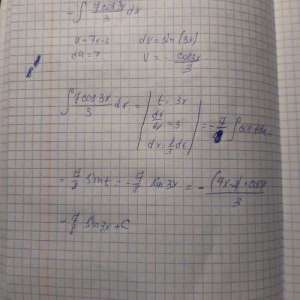 - ∫ 7cos3x/3 dx
u = 7x-2 dv = sin(3x)
du = 7 v = - cos3x/3
∫ 7cos3x/3 dx = | t = 3x dt/dx = 3 dx = 1/3 dt | = - 7/9 ∫ cos
- 7/9 sin t = - 7/9 sin3x = - 3
- 7/9 sin3x + C